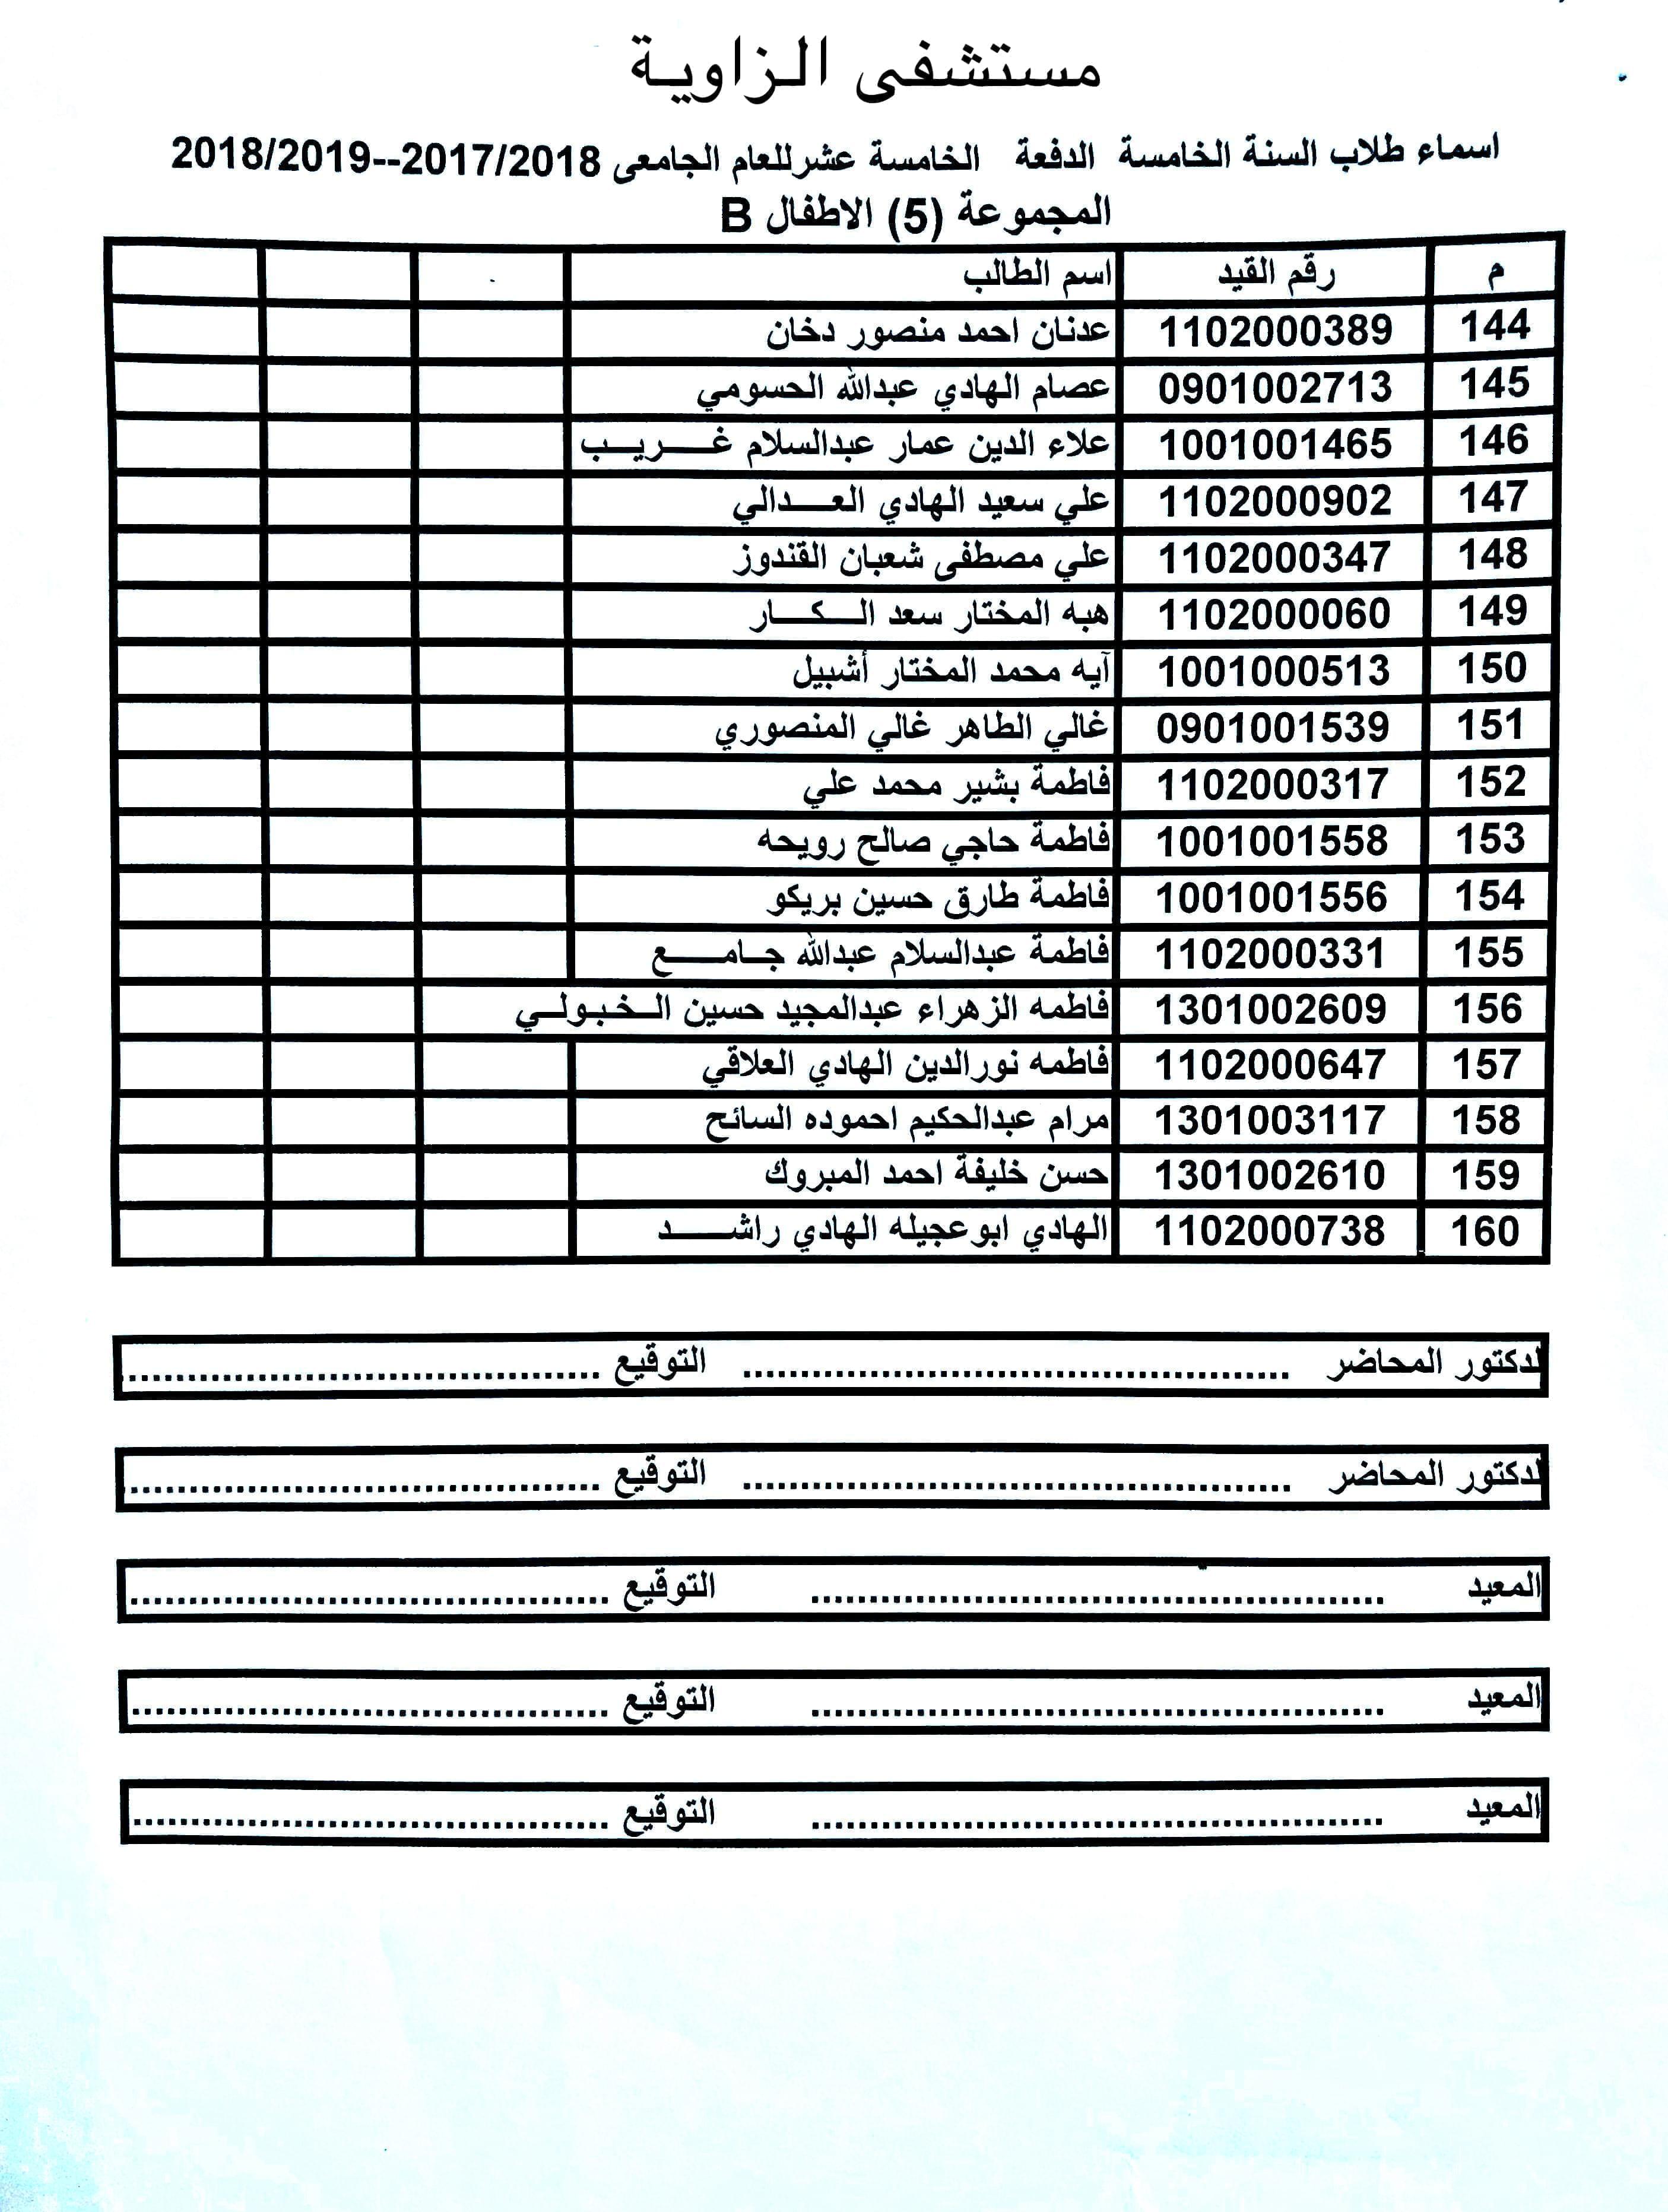 مستشفى الزاوية
اسماء طلاب السنة الخامسة الدفعة الخامسة عشرللعام الجامعى 2017/2018--2018/2019
المجموعة (5) الاطفال B
م رقم القيد اسم الطالب
144 1102000389 عدنان احمد منصور دخان
145 0901002713 عصام الهادي عبدالله الحسومي
146 1001001465 علاء الدين عمار عبدالسلام غـــريــب
147 1102000902 علي سعيد الهادي العــدالي
148 1102000347 علي مصطفى شعبان القندوز
149 1102000060 هبه المختار سعد الــكـــار
150 1001000513 آيه محمد المختار أشبيل
151 0901001539 غالي الطاهر غالي المنصوري
152 1102000317 فاطمة بشير محمد علي
153 1001001558 فاطمة حاجي صالح رويحه
154 1001001556 فاطمة طارق حسين بريكو
155 1102000331 فاطمة عبدالسلام عبدالله جــامــــع
156 1301002609 فاطمه الزهراء عبدالمجيد حسين الــخـبـولــي
157 1102000647 فاطمه نورالدين الهادي العلاقي
158 1301003117 مرام عبدالحكيم احموده السائح
159 1301002610 حسن خليفة احمد المبروك
160 1102000738 الهادي ابوعجيله الهادي راشـــــد
لدكتور المحاضر ................................................ التوقيع ..........................................
لدكتور المحاضر ................................................ التوقيع ..........................................
المعيد .................................................. التوقيع ..........................................
المعيد .................................................. التوقيع ..........................................
المعيد .................................................. التوقيع ..........................................